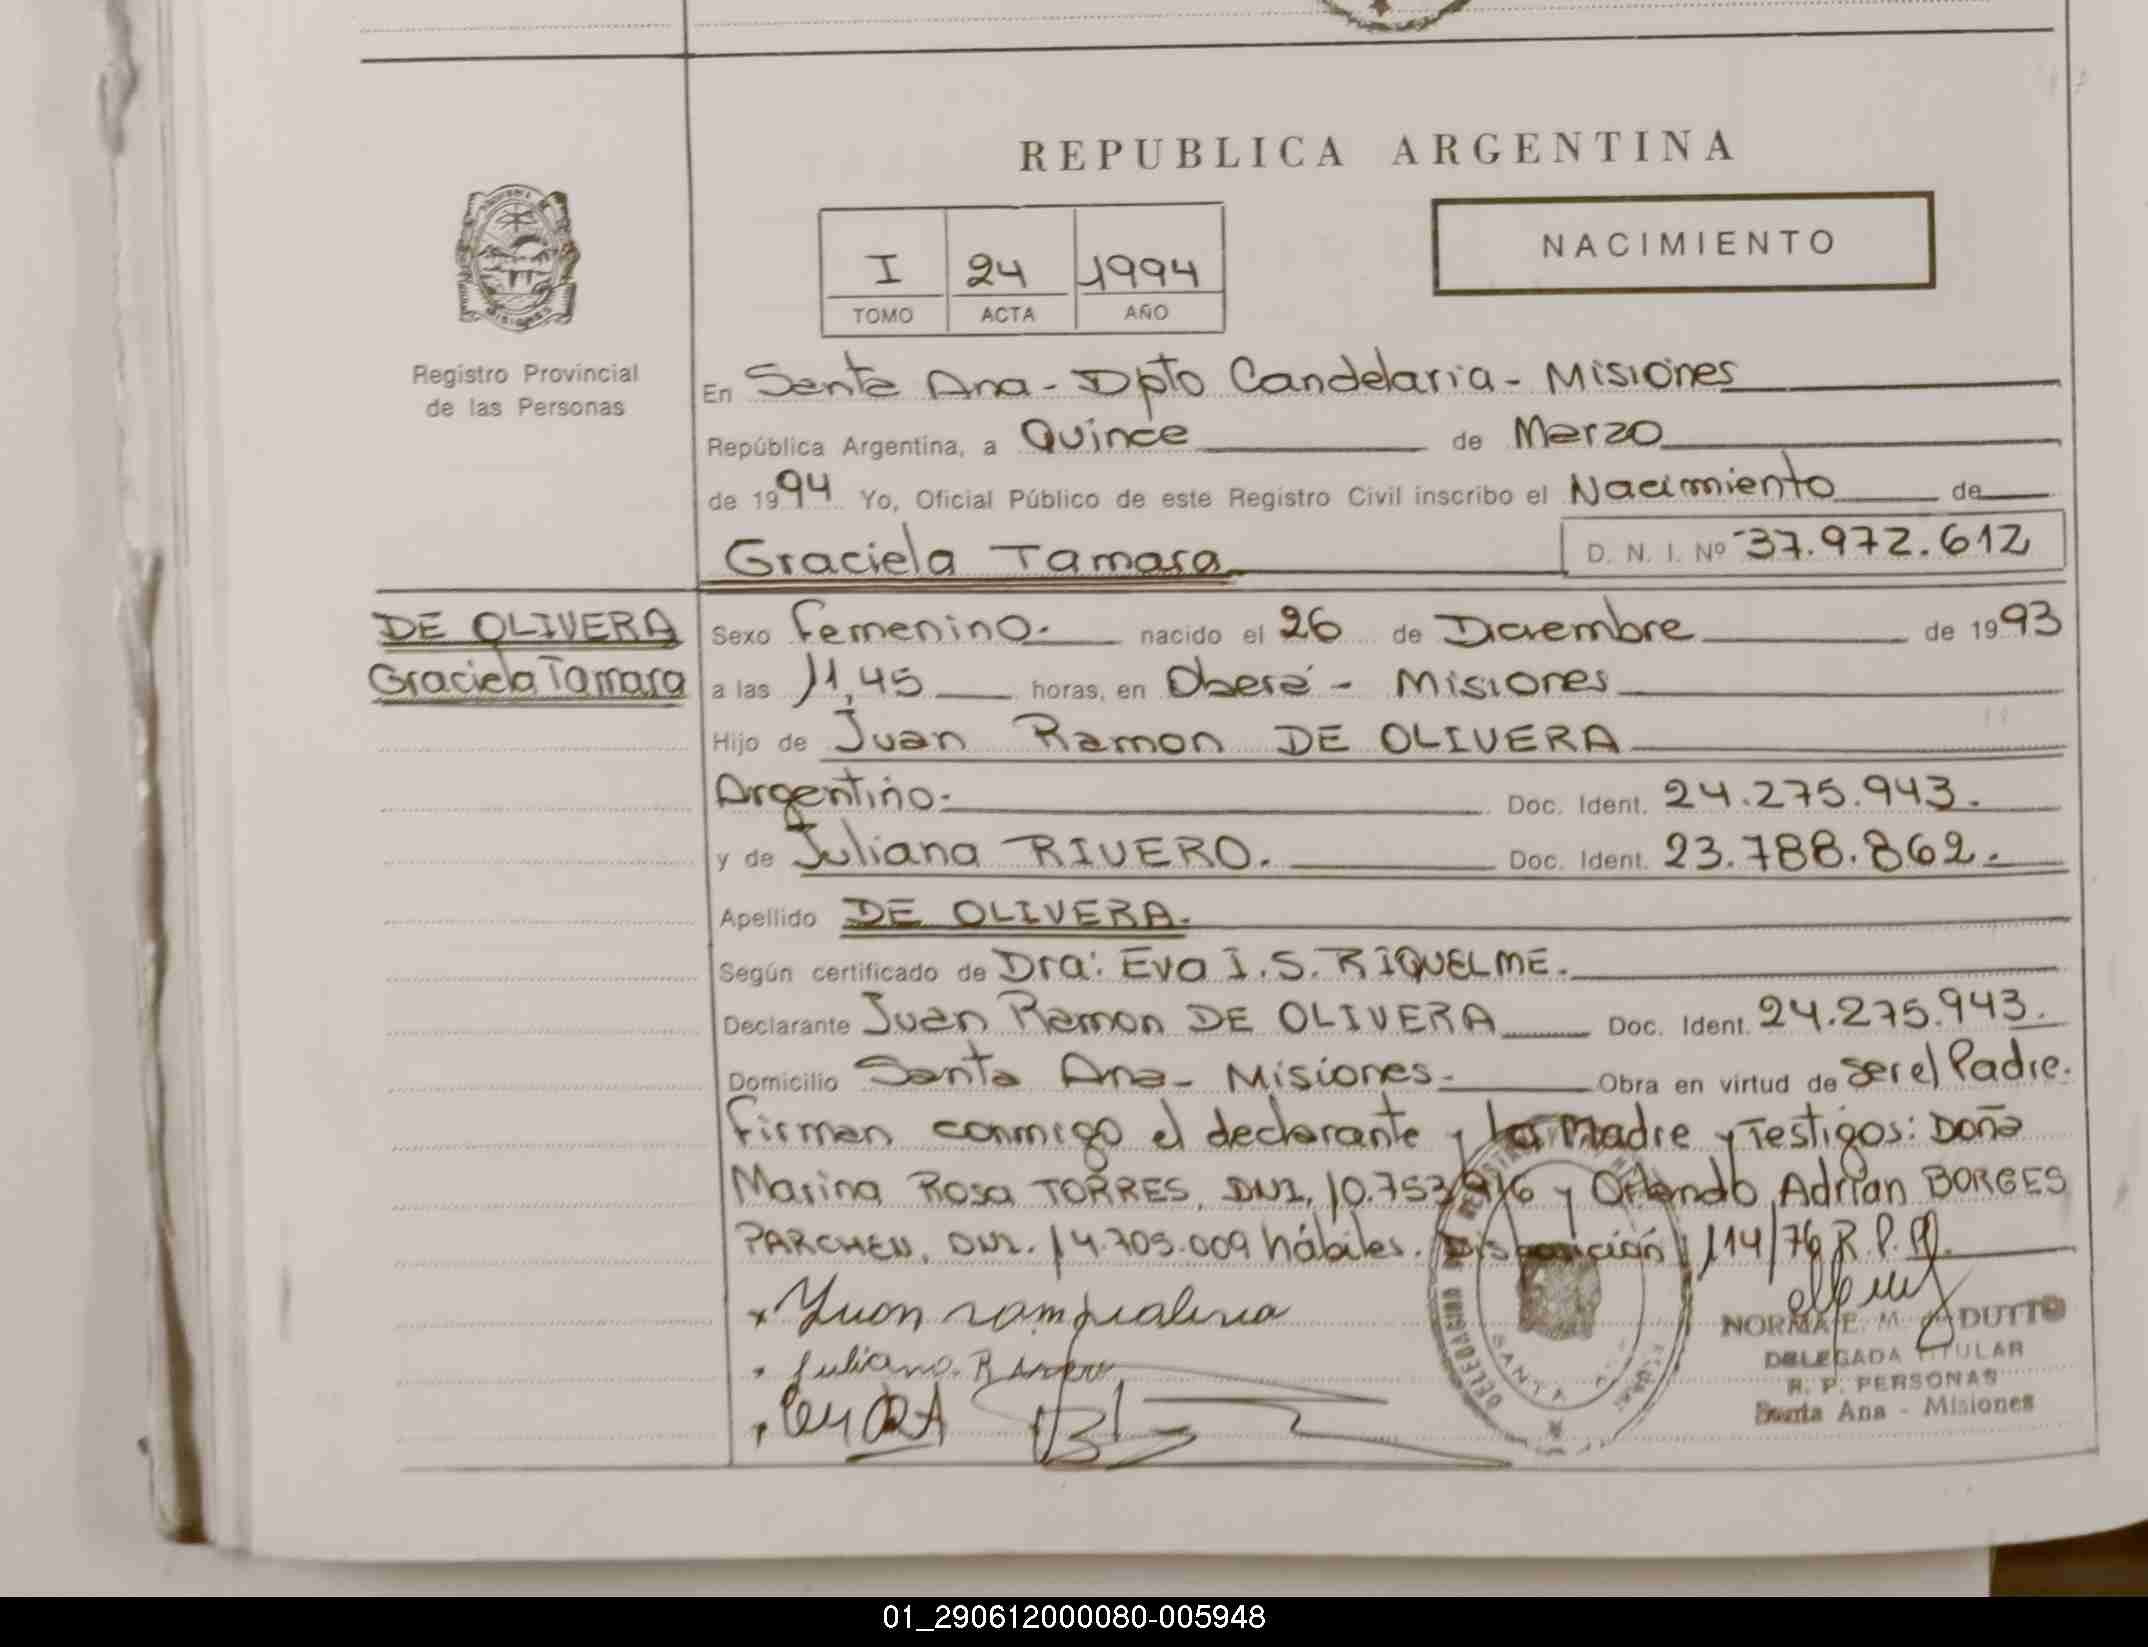 REPUBLICA ARGENTINA
NACIMIENTO
I 24 1994
TOMO ACTA AÑO
MISIONES
Registro Provincial
de las Personas
En Santa Ana - Dpto Candelaria - Misiones
República Argentina, a Quince de Marzo
de 1994 Yo, Oficial Público de este Registro Civil inscribo el Nacimiento de
Graciela Tamara D. N. I. Nº 37.972.612
DE OLIVERA
Graciela Tamara
Sexo Femenino. nacido el 26 de Diciembre de 1993
a las 11,45 horas, en Oberá - Misiones
Hijo de Juan Ramon DE OLIVERA
Argentino. Doc. Ident. 24.275.943.
y de Juliana RIVERO. Doc. Ident. 23.788.862.
Apellido DE OLIVERA.
Según certificado de Dra: Eva I.S. RIQUELME.
Declarante Juan Ramon DE OLIVERA Doc. Ident. 24.275.943.
Domicilio Santa Ana - Misiones. Obra en virtud de ser el Padre.
Firman conmigo el declarante y La Madre y Testigos: Doña
Marina Rosa TORRES, DNI, y Orlando Adrian BORGES
PARCHEN, DNI. 14.705.009 hábiles. Disposición 114/76 R.P.P.
Juliana. Rivero
NORMA E. M. DUTTO
DELEGADA TITULAR
R. P. PERSONAS
Santa Ana - Misiones
SANTA
01_290612000080-005948